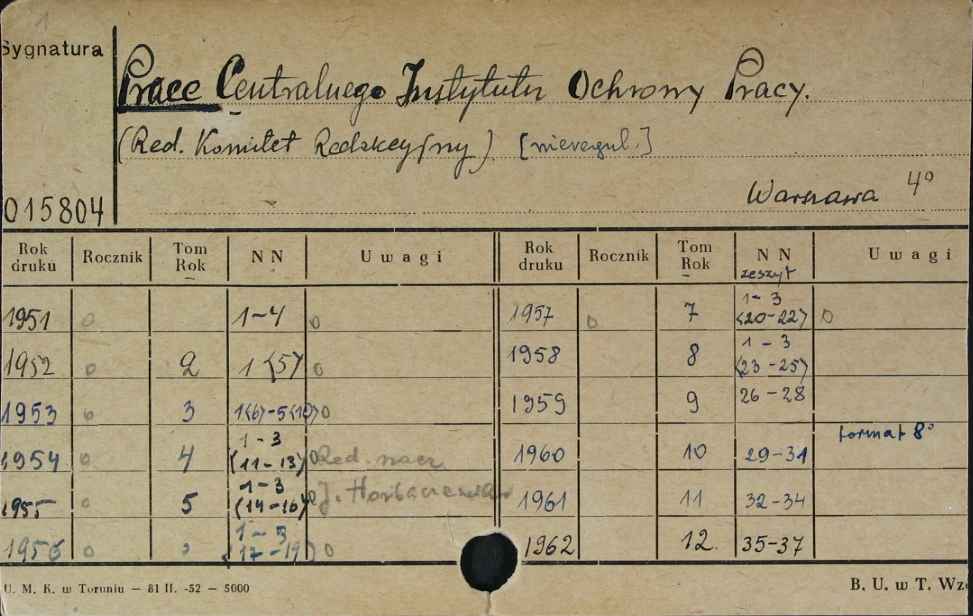 1
Sygnatura
Prace Centralnego Instytutu Ochrony Pracy.
(Red. Komitet Redakcyjny) [nieregul.]
Warszawa 4°
015804
Rok druku Rocznik Tom Rok NN Uwagi Rok druku Rocznik Tom Rok NN zeszyt Uwagi
1951 0 1-4 0 1957 0 7 1-3 (20-22) 0
1952 0 2 1(5) 0 1958 8 1-3 (23-25)
1953 0 3 1(6)-5(10) 0 1959 9 26-28
1954 0 4 1-3 (11-13) 0 Red. nacz. 1960 10 29-31 format 8°
1955 0 5 1-3 (14-16) 0 J. 1961 11 32-34
1956 0 (17-19) 0 1962 12. 35-37
U. M. K. w Toruniu — 81 II. -52 — 5000
B. U. w T. Wz